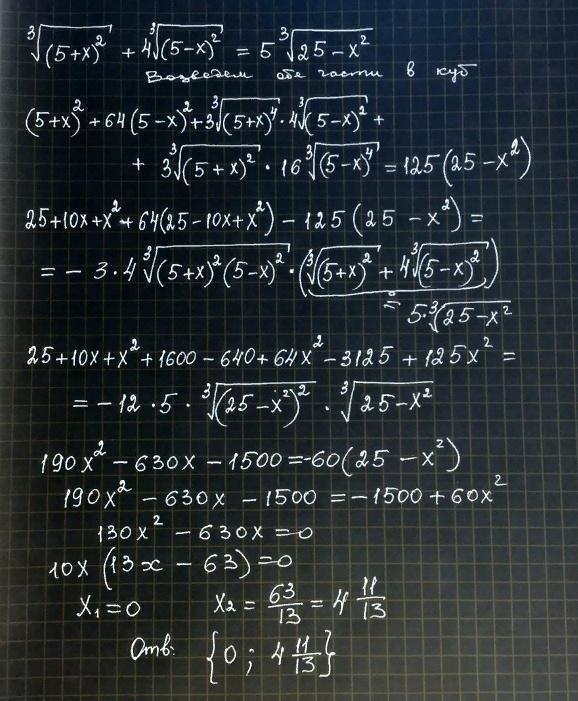 ∛(5+x)² + 4∛(5-x)² = 5∛25-x²
Возведем обе части в куб
(5+x)² + 64(5-x)² + 3∛(5+x)⁴ · 4∛(5-x)² +
+ 3∛(5+x)² · 16∛(5-x)⁴ = 125(25-x²)
25+10x+x² + 64(25-10x+x²) - 125(25-x²) =
= - 3·4∛(5+x)²(5-x)² · (∛(5+x)² + 4∛(5-x)²)
= 5·∛25-x²
25+10x+x² + 1600 - 640 + 64x² - 3125 + 125x² =
= -12·5·∛(25-x²)² · ∛25-x²
190x² - 630x - 1500 = -60(25-x²)
190x² - 630x - 1500 = -1500 + 60x²
130x² - 630x = 0
10x(13x - 63) = 0
x₁ = 0 x₂ = 63/13 = 4 11/13
Отв: {0; 4 11/13}